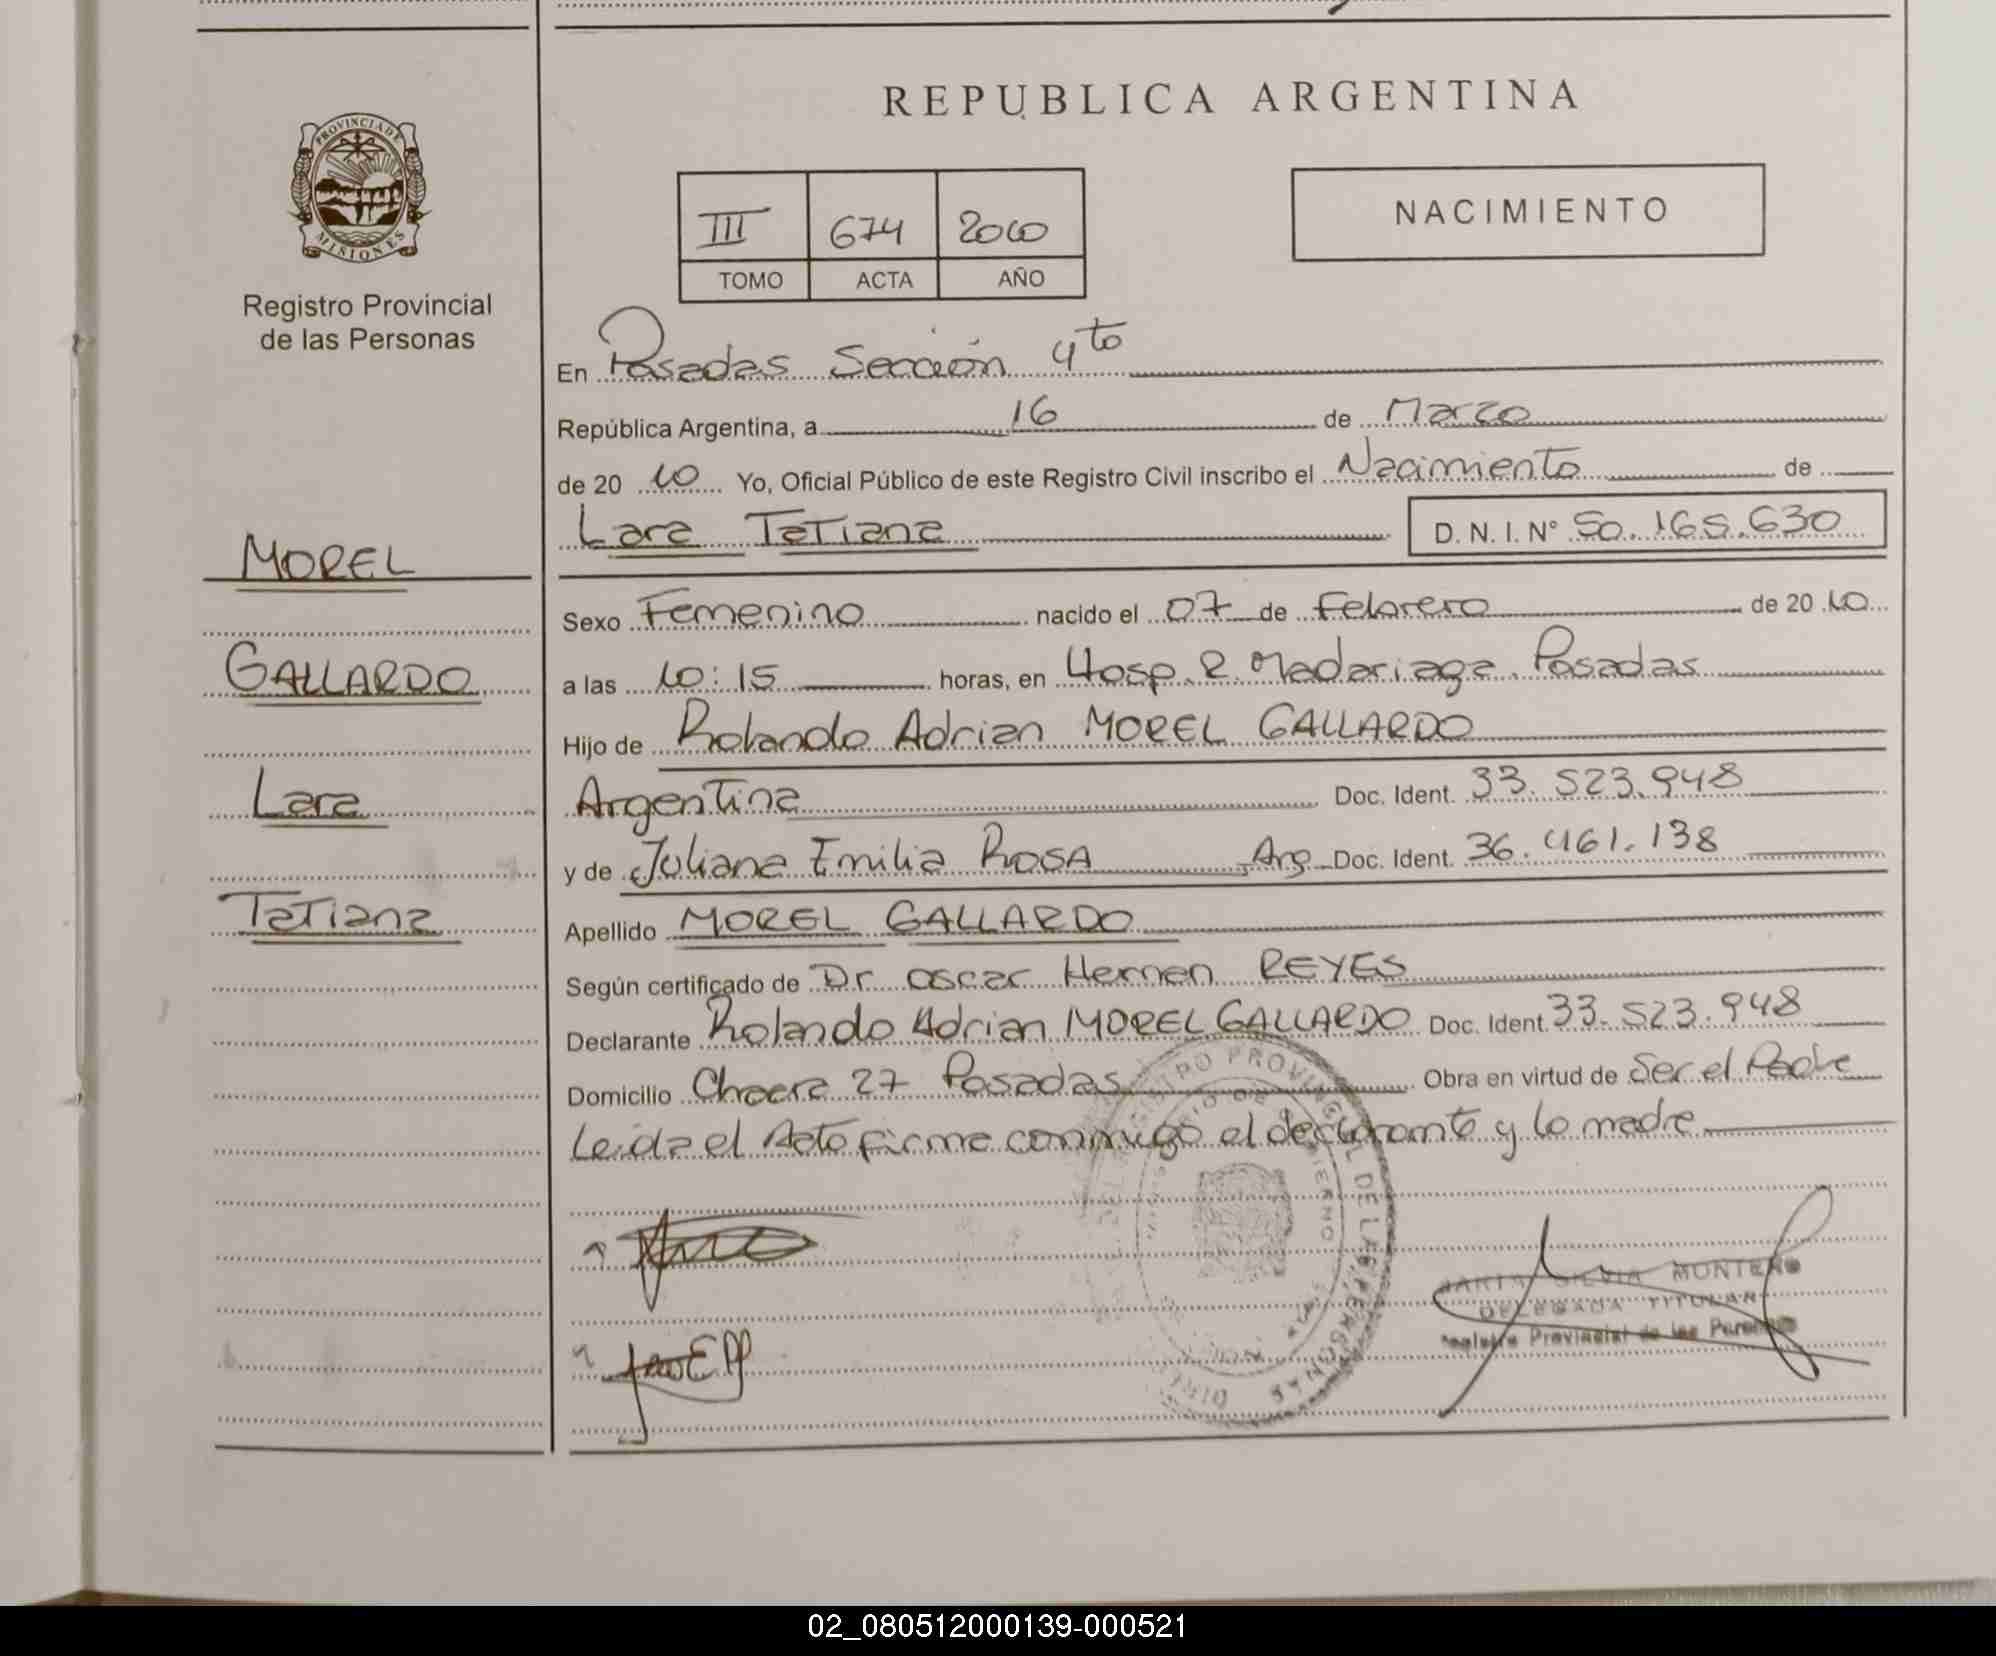 REPUBLICA ARGENTINA
PROVINCIA DE
MISIONES
Registro Provincial
de las Personas
III 674 2010
TOMO ACTA AÑO
NACIMIENTO
En Posadas Sección 4to
República Argentina, a 16 de Marzo
de 20 10 Yo, Oficial Público de este Registro Civil inscribo el Nacimiento de
Lara Tatiana D. N. I. N° 50.165.630
MOREL
GALLARDO
Lara
Tatiana
Sexo Femenino nacido el 07 de Febrero de 20 10
a las 10:15 horas, en Hosp. R. Madariaga. Posadas
Hijo de Rolando Adrian MOREL GALLARDO
Argentina Doc. Ident. 33.523.948
y de Juliana Emilia ROSA Arg Doc. Ident. 36.461.138
Apellido MOREL GALLARDO
Según certificado de Dr Oscar Hernen REYES
Declarante Rolando Adrian MOREL GALLARDO Doc. Ident. 33.523.948
Domicilio Chacra 27 Posadas Obra en virtud de Ser el Padre
Leida el Acta firma conmigo el declarante y la madre
REGISTRO PROVINCIAL DE LAS PERSONAS
MARIA SILVIA MONTERO
DELEGADA TITULAR
Registro Provincial de las Personas
02_080512000139-000521